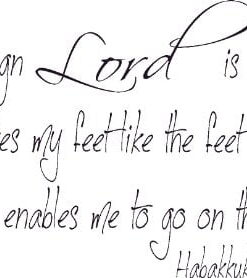 gn Lord is
es my feet like the feet
enables me to go on th
Habakkuk